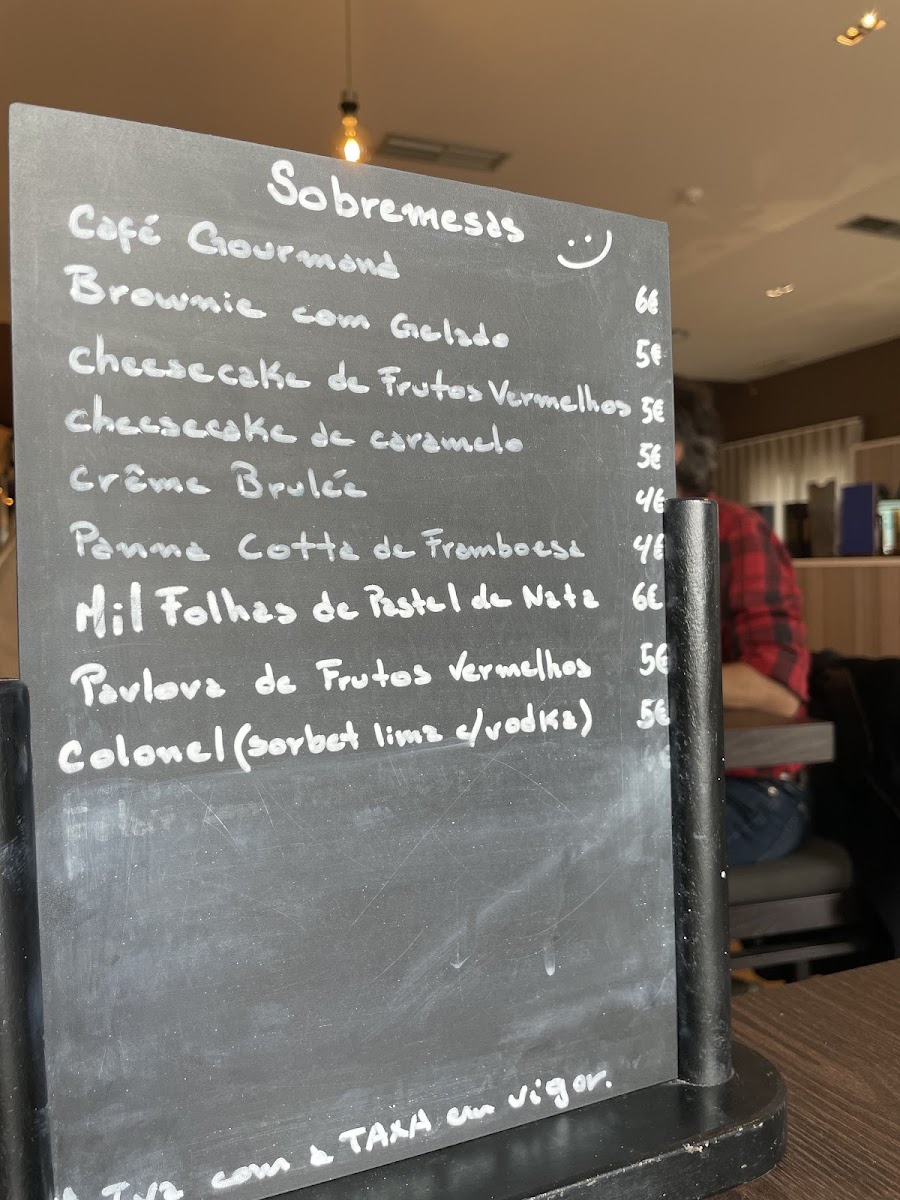 Sobremesas
Café Gourmand 6€
Brownie com Gelado 5€
cheesecake de Frutos Vermelhos 5€
cheesecake de caramelo 5€
crême Brulée 4€
Panna Cotta de Framboesa 4€
Mil Folhas de Pastel de Nata 6€
Pavlova de Frutos Vermelhos 5€
Colonel (sorbet lima c/vodka) 5€
A Iva com a TAXA em vigor.